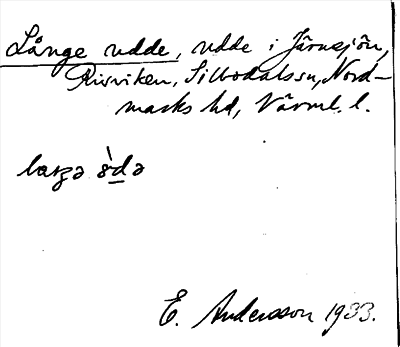 Långe udde, udde i Järnsjön,
Risviken, Silbodals sn, Nord-
marks hd, Värml. l.
E. Andersson 1933.